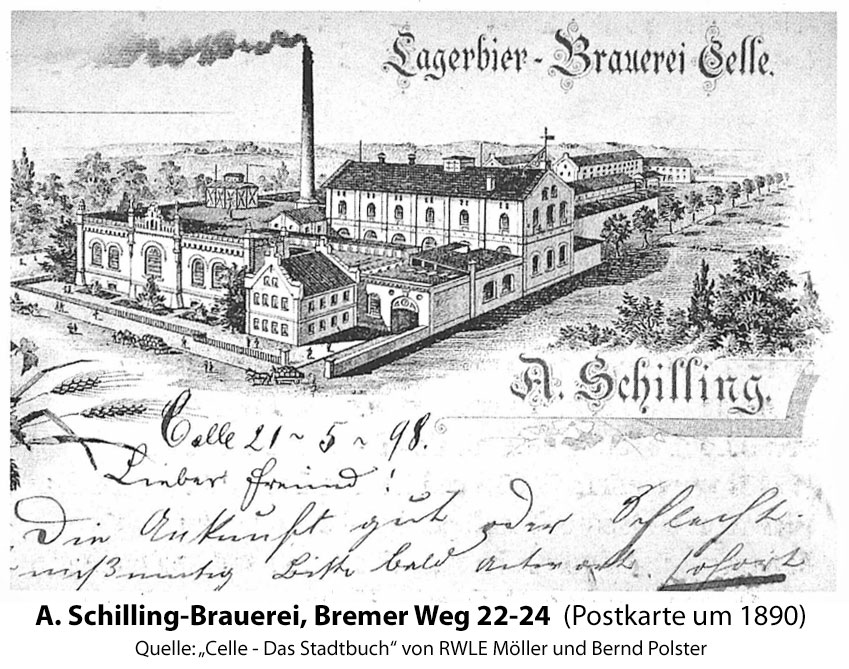 Lagerbier-Brauerei Celle.
A. Schilling.
Celle 21 ~ 5 ~ 98.
Lieber Freund!
Die Ankunft gut oder Schlecht
mißmutig Bitte bald Antwort sofort
A. Schilling-Brauerei, Bremer Weg 22-24 (Postkarte um 1890)
Quelle: „Celle - Das Stadtbuch“ von RWLE Möller und Bernd Polster